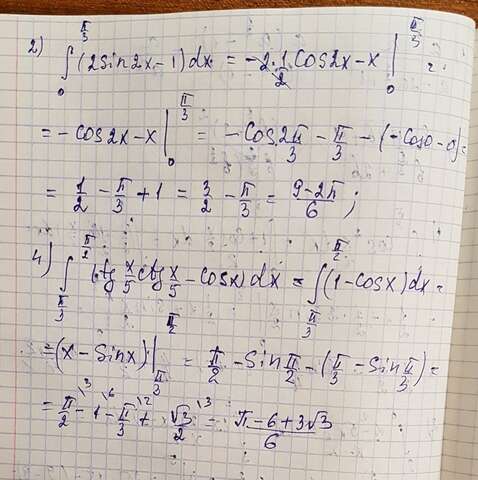 2) ∫₀^{π/3} (2sin2x - 1)dx = -2·1/2 cos2x - x |₀^{π/3} =
= -cos2x - x |₀^{π/3} = -cos 2π/3 - π/3 - (-cos0 - 0) =
= 1/2 - π/3 + 1 = 3/2 - π/3 = (9 - 2π)/6 ;
4) ∫_{π/3}^{π/2} (tg x/5 ctg x/5 - cosx)dx = ∫_{π/3}^{π/2} (1 - cosx)dx =
= (x - sinx) |_{π/3}^{π/2} = π/2 - sin π/2 - (π/3 - sin π/3) =
= π/2 \3 - 1 \6 - π/3 \2 + √3/2 \3 = (π - 6 + 3√3)/6